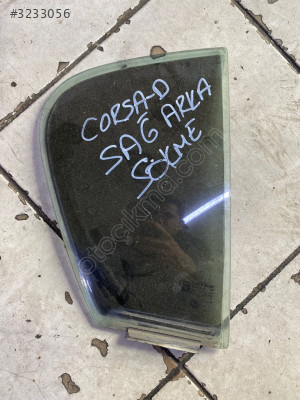 #3233056
CORSA-D
SAĞ ARKA
SÖKME
otocikma.com